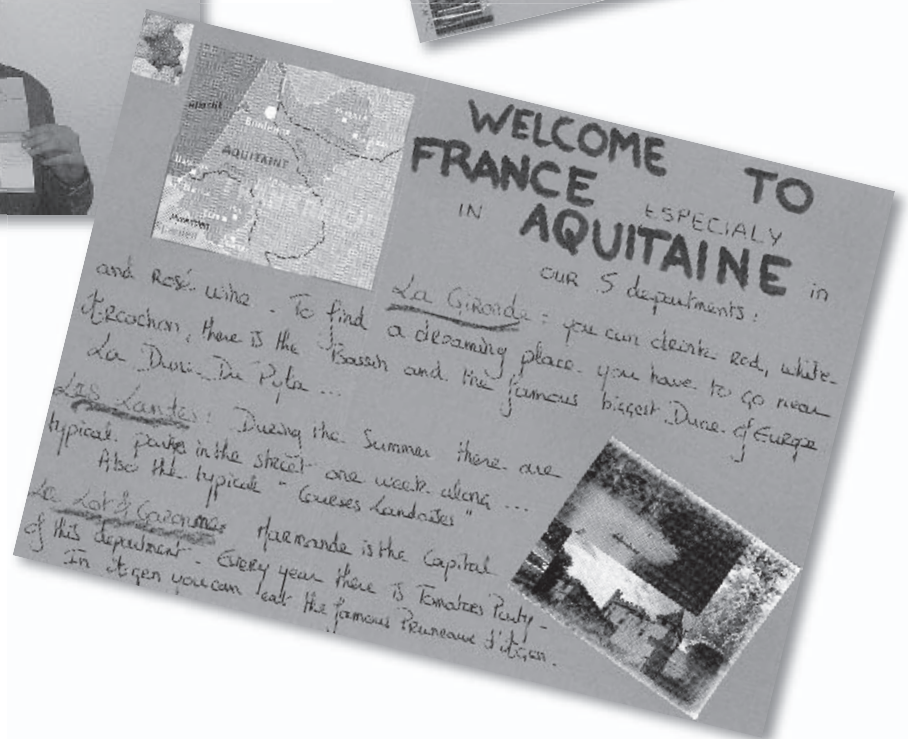 WELCOME TO
FRANCE ESPECIALY
IN AQUITAINE in
our 5 departments:
La Gironde: you can drink Red, white
and Rosé wine. To find a dreaming place you have to go near
Arcachon, there is the Bassin and the famous biggest Dune of Europe
La Dune Du Pyla ...
Les Landes: During the Summer there are
typical parties in the street one week along ...
Also the typical "Courses Landaises"
Le Lot & Garonne: Marmande is the Capital
of this department. Every year there is Tomatoes Party.
In Agen you can eat the famous Pruneaux d'Agen.
Bordeaux
AQUITAINE
Spanien